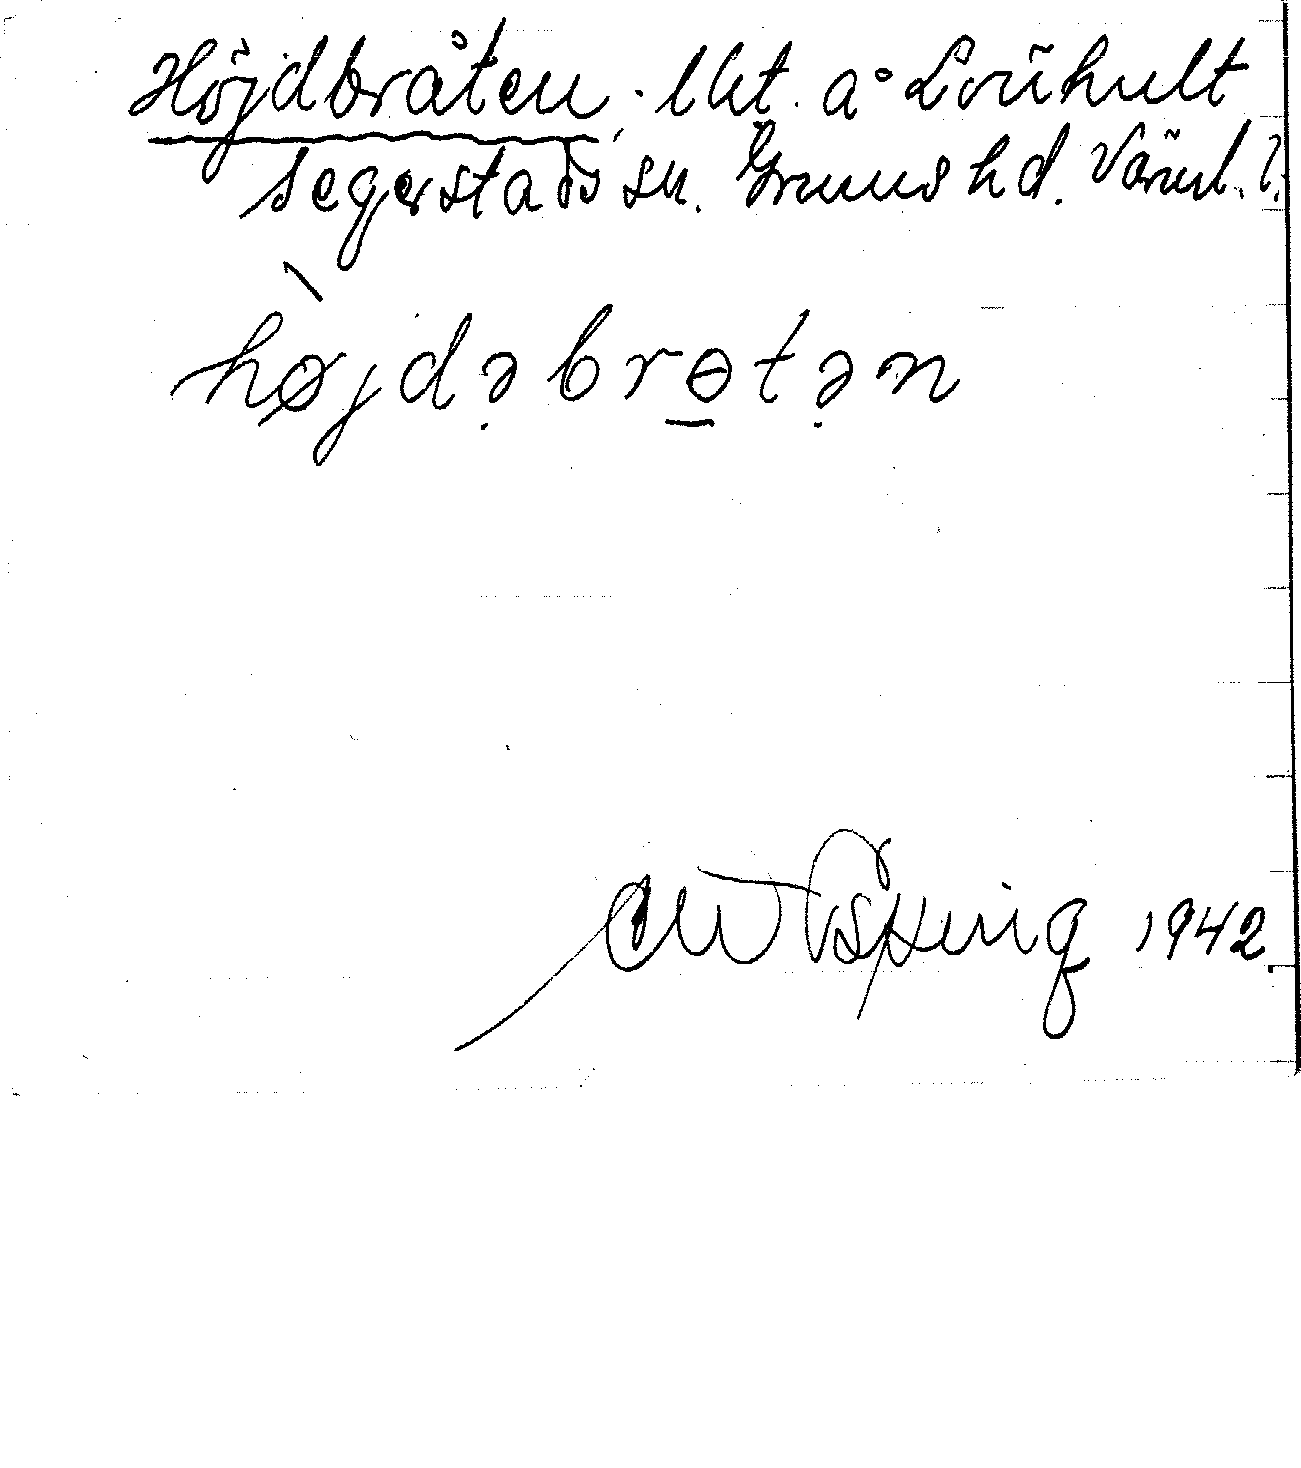 Höjdbråten, lht. å Lönhult
Segerstads sn. Grums hd. Värml. l.
højdəbrɵtən
1942